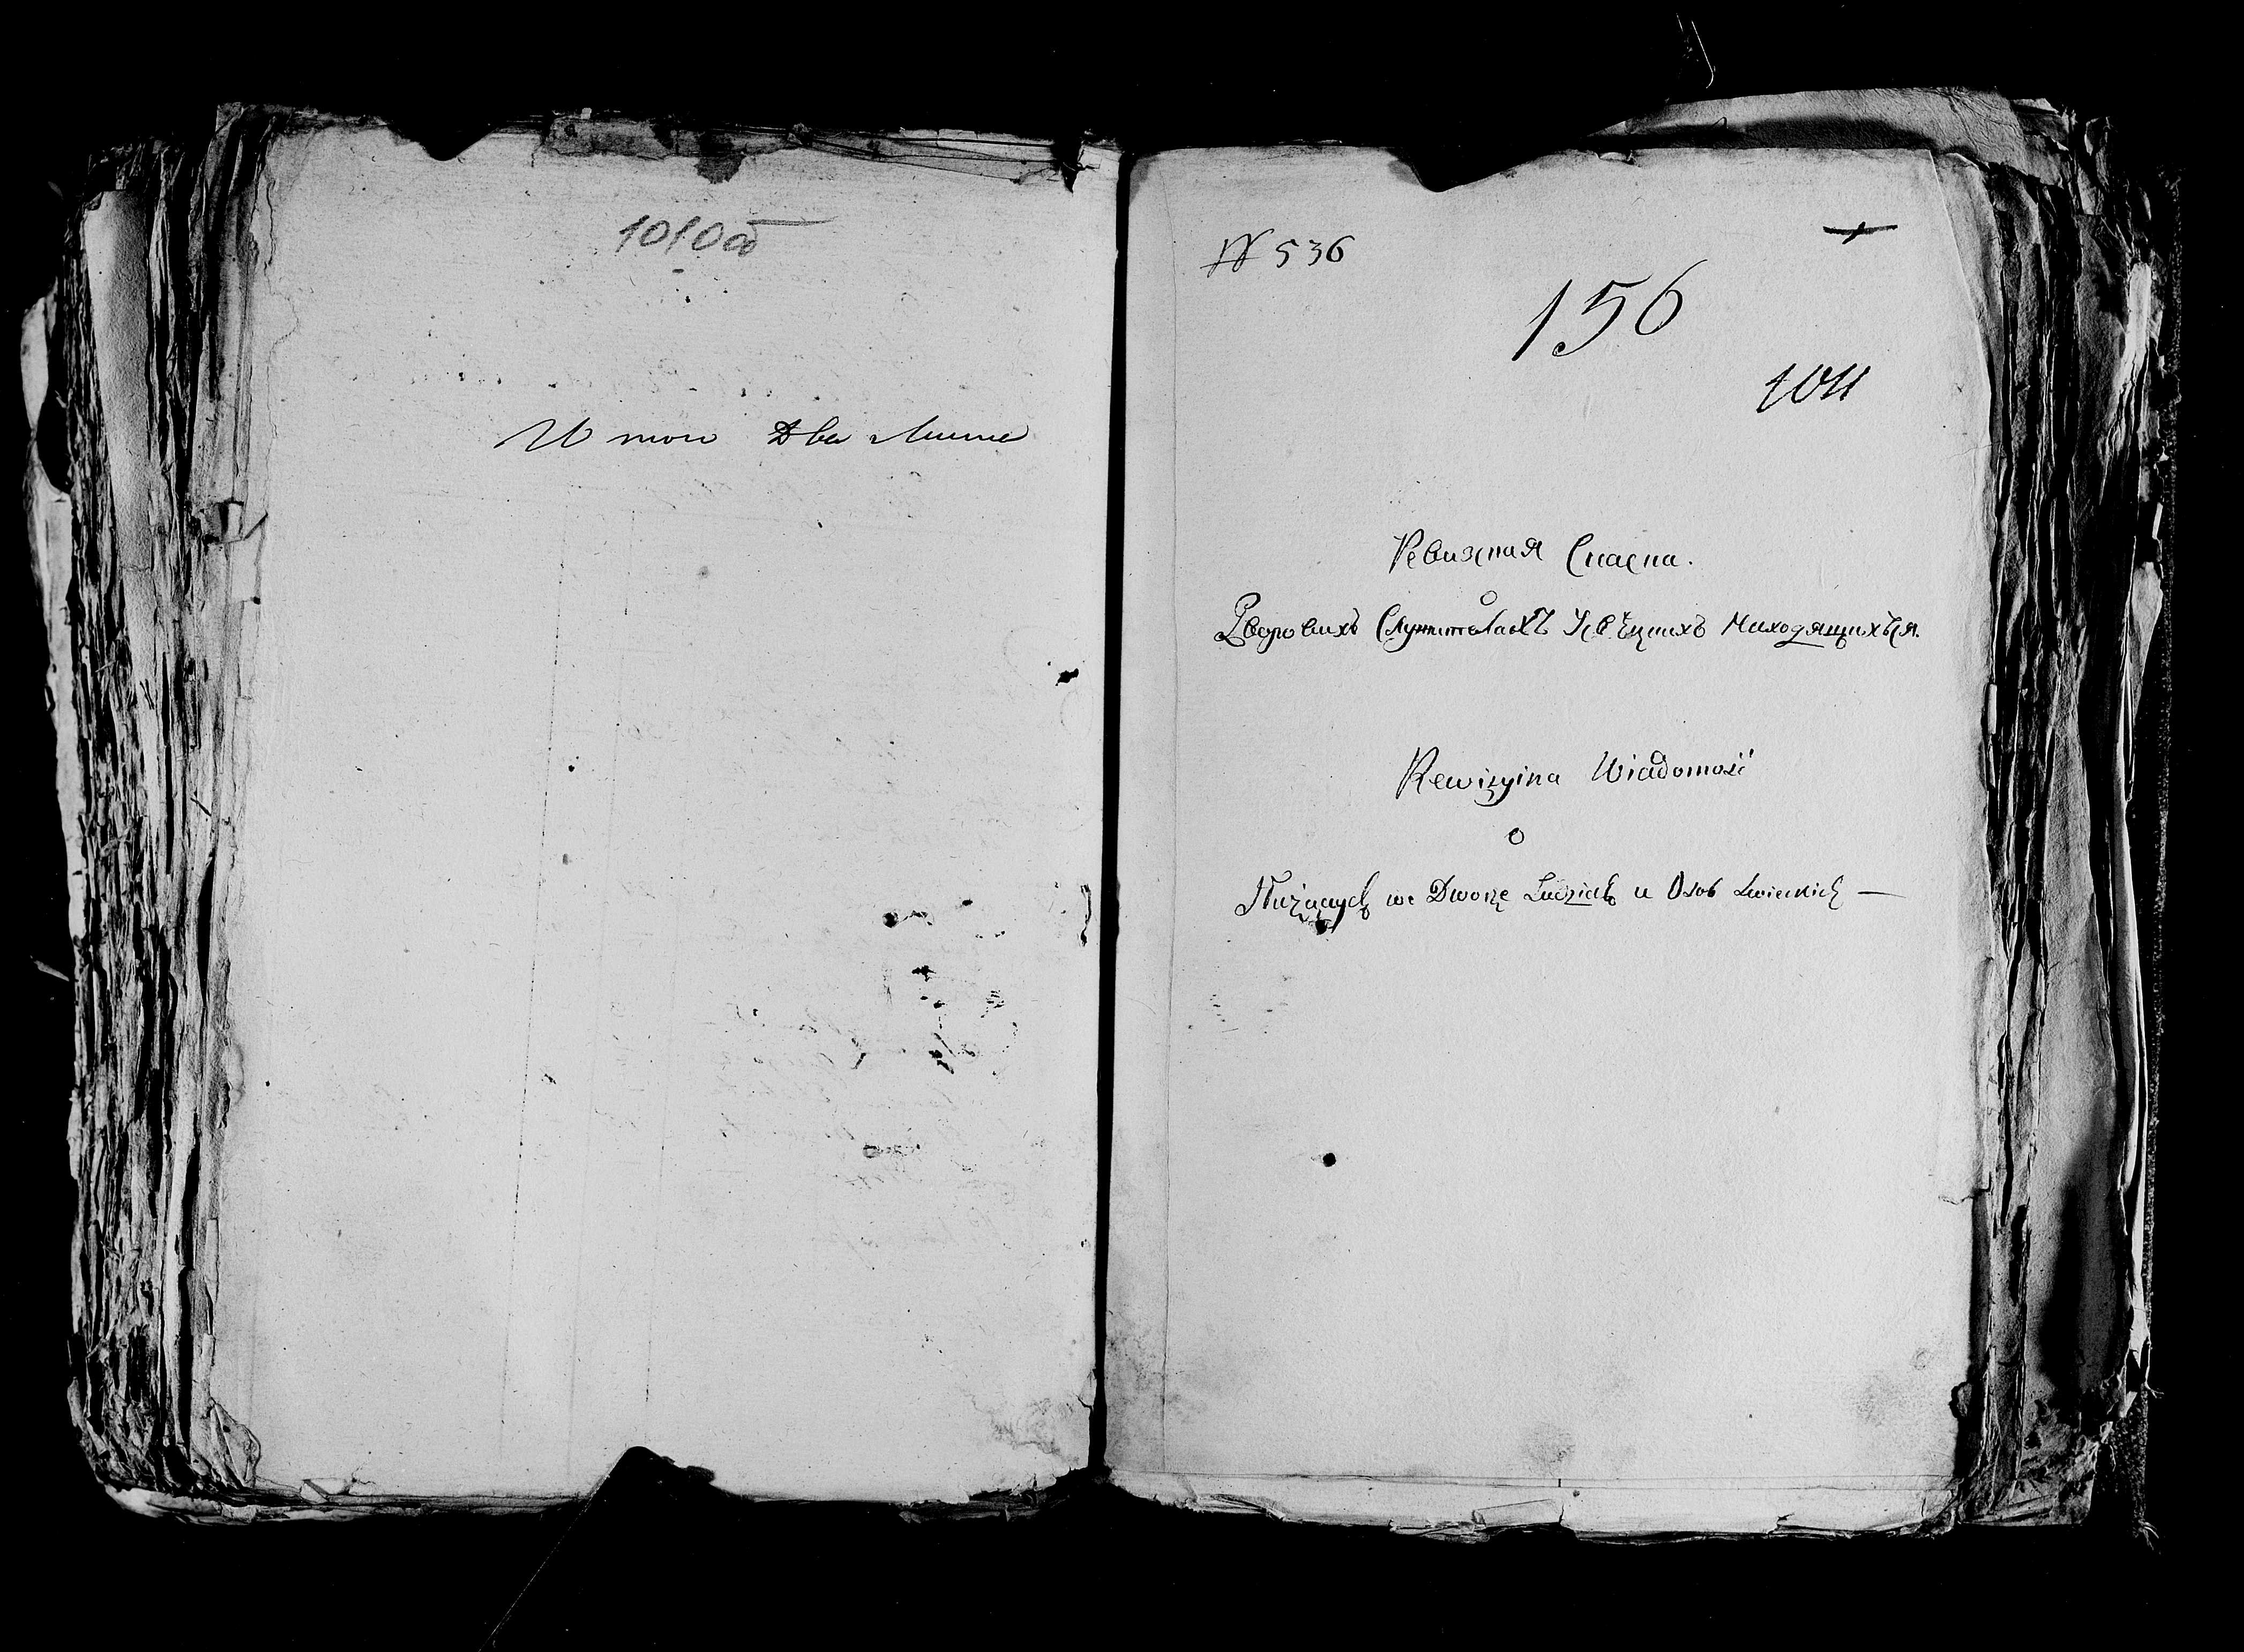 1010об
И того Два листа
№ 536
1
156
1011
Ревизная Сказка.
о
Дворовихъ Служителахъ У Свѣцкихъ Находящихъся.
Rewizyina Wiadomość
o
Służących we Dworze Ludziach u Osob Swieckich —